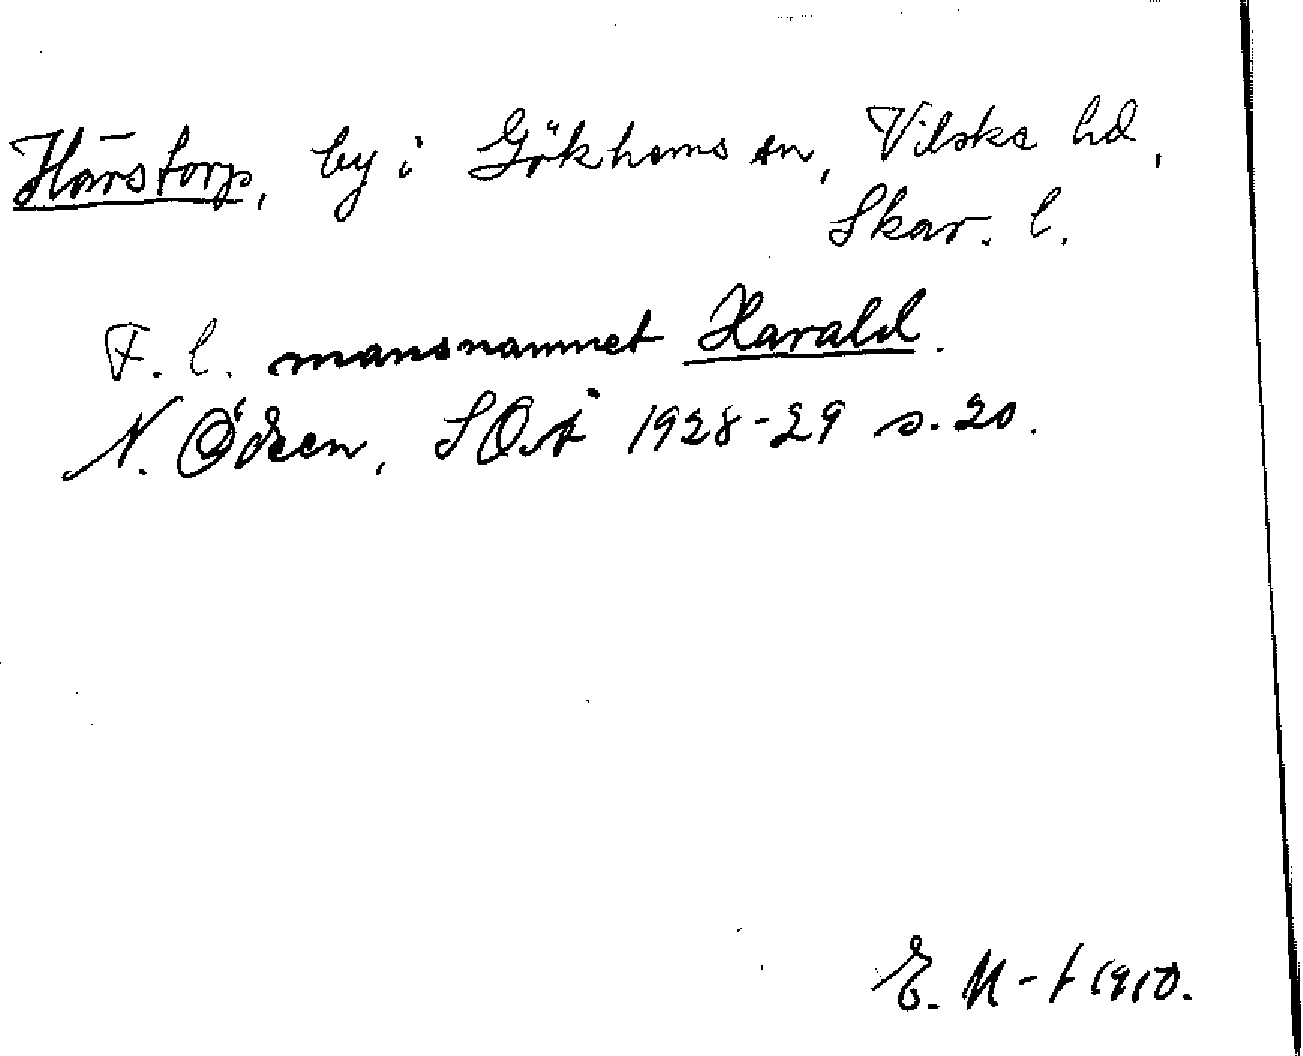 Hårstorp, by i Gökhems sn, Vilske hd,
Skar. l.
F. l. mansnamnet Harald.
N. Ödeen, SOÅ 1928-29 s. 20.
E. M-t 1910.